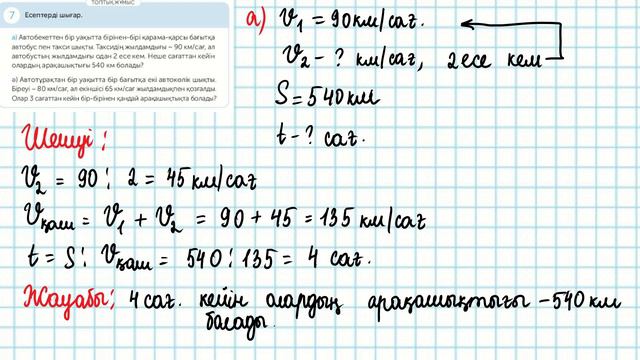 ТОПТЫҚ ЖҰМЫС
7 Есептерді шығар.
а) Автобекеттен бір уақытта бірінен-бірі қарама-қарсы бағытқа
автобус пен такси шықты. Таксидің жылдамдығы – 90 км/сағ, ал
автобустың жылдамдығы одан 2 есе кем. Неше сағаттан кейін
олардың арақашықтығы 540 км болады?
ә) Автотұрақтан бір уақытта бір бағытқа екі автокөлік шықты.
Біреуі – 80 км/сағ, ал екіншісі 65 км/сағ жылдамдықпен қозғалды.
Олар 3 сағаттан кейін бір-бірінен қандай арақашықтықта болады?
а) V₁ = 90 км/сағ.
V₂ - ? км/сағ, 2 есе кем
S = 540 км
t - ? сағ.
Шешуі:
V₂ = 90 : 2 = 45 км/сағ
Vқаш = V₁ + V₂ = 90 + 45 = 135 км/сағ
t = S : Vқаш = 540 : 135 = 4 сағ.
Жауабы: 4 сағ. кейін олардың арақашықтығы - 540 км
болады.